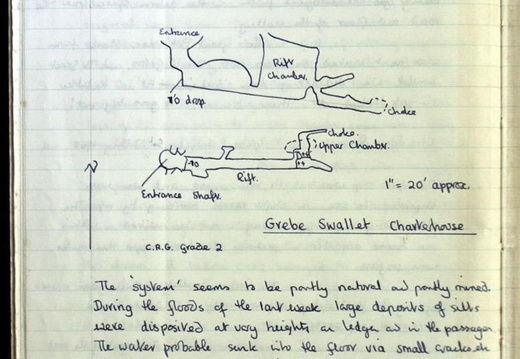 Entrance
Rift
Chamber.
10 drop
choke
choke.
Upper Chamber.
10
Rift.
Entrance Shaft.
N
1" = 20' approx.
Grebe Swallet Charterhouse
C.R.G. Grade 2
The 'system' seems to be partly natural and partly mined
During the floods of the last week large deposits of silts
were disposited at vary heights on ledges as in the passages
The water probable sunk into the floor via small cracks